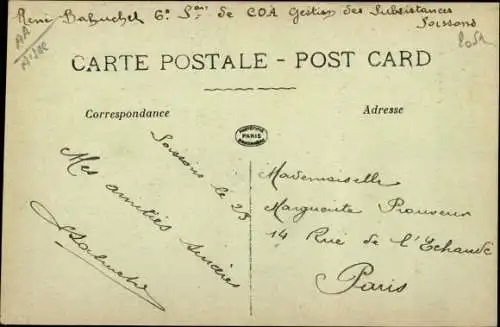 René Bahuchet 6e Son de COA Gestion des Subsistances
Soissons
AA
Aisne
CARTE POSTALE - POST CARD
Correspondance
Adresse
PARIS
Soissons le 23
Mes amitiés sincères
Bahuchet
Mademoiselle
Marguerite
14 Rue de l'Echaudé
Paris